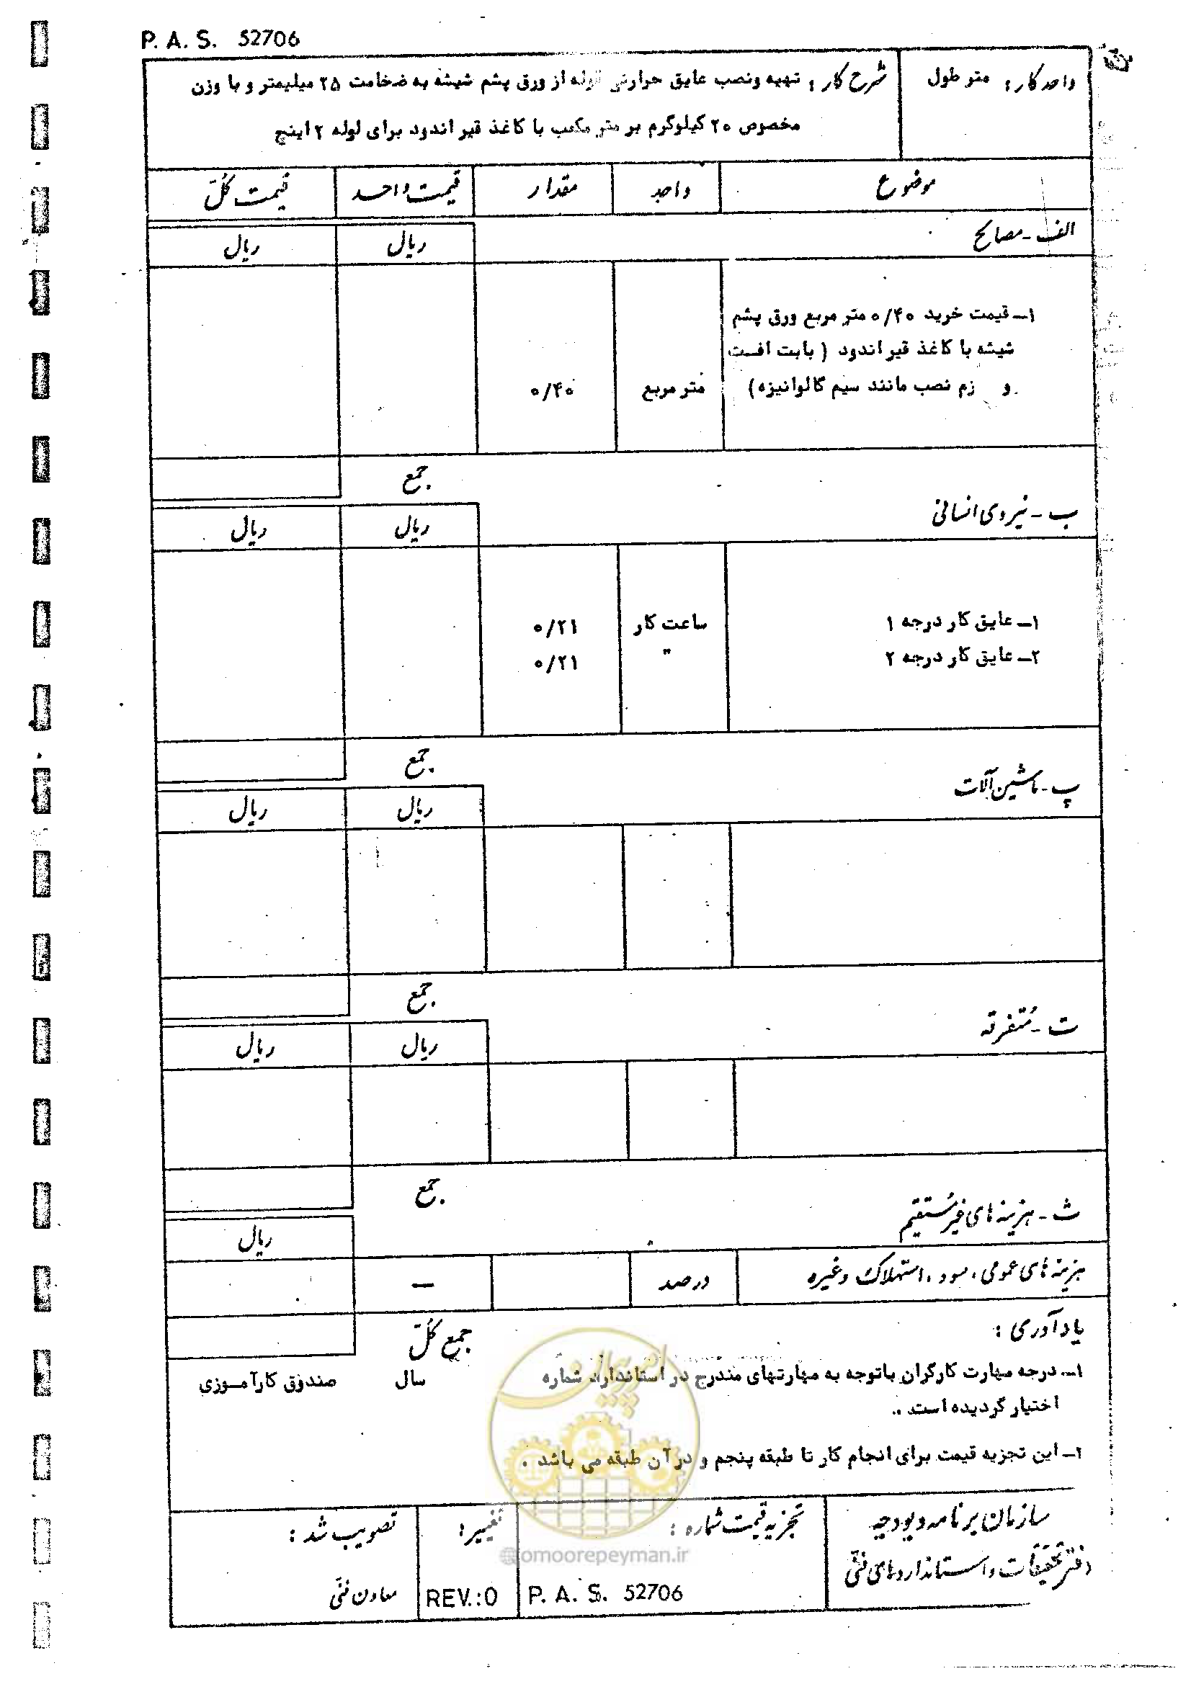 P. A. S. 52706
واحد کار : متر طول
شرح کار : تهیه ونصب عایق حرارتی لوله از ورق پشم شیشه به ضخامت ۲۵ میلیمتر و با وزن
مخصوص ۲۰ کیلوگرم بر متر مکعب با کاغذ قیر اندود برای لوله ۲ اینچ
موضوع واحد مقدار قیمت واحد قیمت کلّ
الف - مصالح ریال ریال
۱ــ قیمت خرید ۰/۴۰ متر مربع ورق پشم
شیشه با کاغذ قیر اندود ( بابت افت
و زم نصب مانند سیم گالوانیزه) متر مربع ۰/۴۰
جمع
ب - نیروی انسانی ریال ریال
۱ــ عایق کار درجه ۱ ساعت کار ۰/۲۱
۲ــ عایق کار درجه ۲ " ۰/۲۱
جمع
پ - ماشین آلات ریال ریال
جمع
ت - مُتفرقه ریال ریال
جمع
ث - هزینه های غیرمُستقیم ریال
هزینه های عمومی ، سود ، استهلاک وغیره درصد —
جمع کُلّ
یادآوری :
۱ــ درجه مهارت کارگران باتوجه به مهارتهای مندرج در استاندارد شماره سال صندوق کارآموزی
اختیار گردیده است .
۱ــ این تجزیه قیمت برای انجام کار تا طبقه پنجم و در آن طبقه می باشد .
سازمان برنامه و بودجه
دفتر تحقیقات و استانداردهای فنّی
تجزیه قیمت شماره :
P. A. S. 52706
تغییر :
REV.:0
تصویب شد :
معاون فنّی
امور پیمان
@omoorepeyman.ir